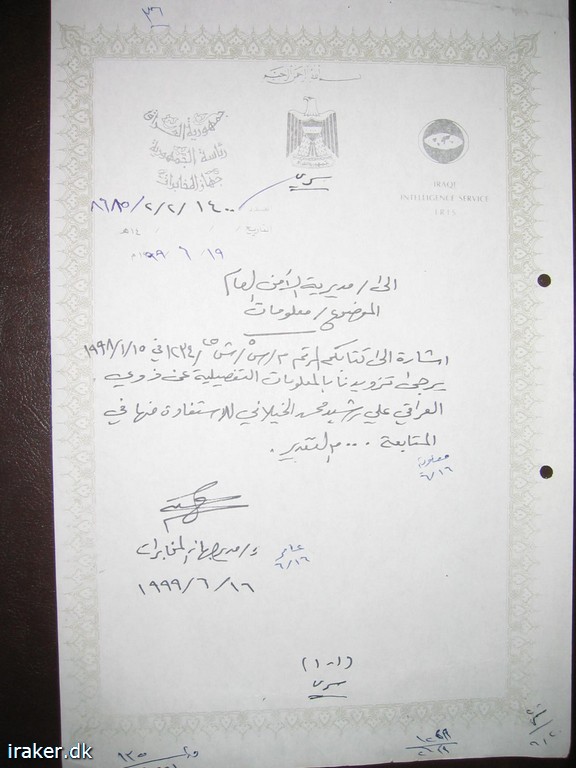 ٣٦
بسم الله الرحمن الرحيم
جمهورية العراق
رئاسة الجمهورية
جهاز المخابرات
IRAQI
INTELLIGENCE SERVICE
I R I S
سري
٨٦٨٥/٢/٢/١٤٠٠
التاريخ / / ١٤هـ
١٩/٦/١٩٩٩م
الى/ مديرية الأمن العام
الموضوع/ معلومات
اشارة الى كتابكم المرقم في ١٩٩٨/١/١٥
يرجى تزويدنا بالمعلومات التفصيلية عن ذوي
العراقي علي رشيد محمد الخيلاني للاستفادة منها في
المتابعة ... مع التقدير.
٦/١٦
ع/مدير جهاز المخابرات
٦/١٦
١٩٩٩/٦/١٦
(١-١)
سري
iraker.dk